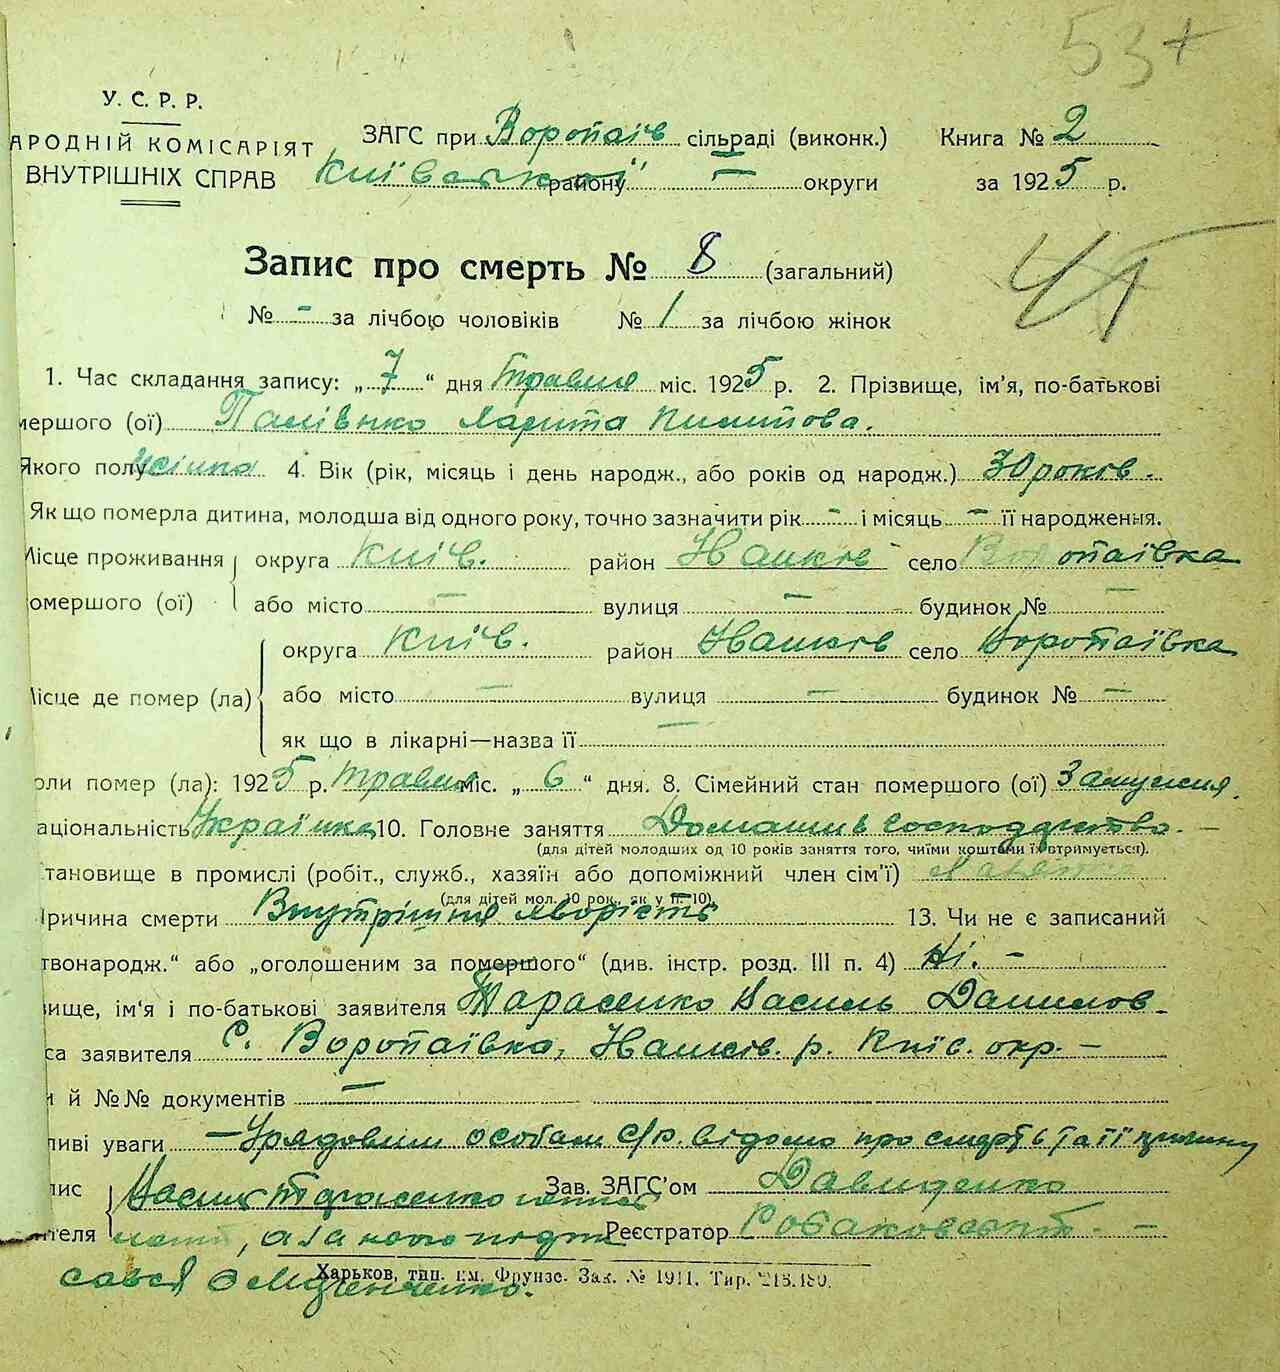 53+
У. С. Р. Р.
АРОДНІЙ КОМІСАРІЯТ
ВНУТРІШНІХ СПРАВ
ЗАГС при Воропаїв сільраді (виконк.) Книга № 2
Київської району — округи за 1925 р.
Запис про смерть № 8 (загальний)
№ - за лічбою чоловіків № 1 за лічбою жінок
1. Час складання запису: „7“ дня травня міс. 1925 р. 2. Прізвище, ім'я, по-батькові
мершого (ої)
Якого полу 4. Вік (рік, місяць і день народж., або років од народж.) 30 років.
Як що померла дитина, молодша від одного року, точно зазначити рік - і місяць - її народження.
Місце проживання округа Київ. район село Воропаївка
омершого (ої) або місто — вулиця — будинок № —
округа Київ. район село Воропаївка
Місце де помер (ла) або місто — вулиця — будинок № —
як що в лікарні—назва її —
оли помер (ла): 1925 р. травня міс. „6“ дня. 8. Сімейний стан помершого (ої) Замужня.
аціональність Українка 10. Головне заняття Домашнє господарство. —
(для дітей молодших од 10 років заняття того, чиїми коштами їх втримується).
тановище в промислі (робіт., служб., хазяїн або допоміжний член сім'ї)
(для дітей мол. 10 рок., як у п. 10).
Причина смерти Внутрішня хворість 13. Чи не є записаний
твонародж.“ або „оголошеним за помершого“ (див. інстр. розд. III п. 4) Ні. —
вище, ім'я і по-батькові заявителя Тарасенко Василь Данилов.
са заявителя С. Воропаївка, р. Київ. окр. —
и й №№ документів —
ливі уваги — Урядовим особам с/р. відомо про смерть та її причину
пис Василь Тарасенко Зав. ЗАГС'ом Давиденко
теля а за нього підпи Реєстратор
сався
Харьков, тип. ім. Фрунзе. Зак. № 1911. Тир. 215.180.